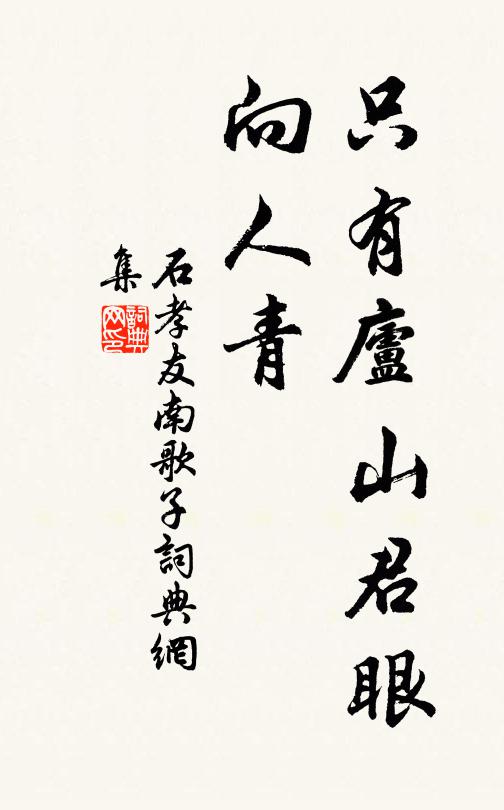 只有廬山君眼
向人青
石孝友南歌子詞典網
集
詞典
网印